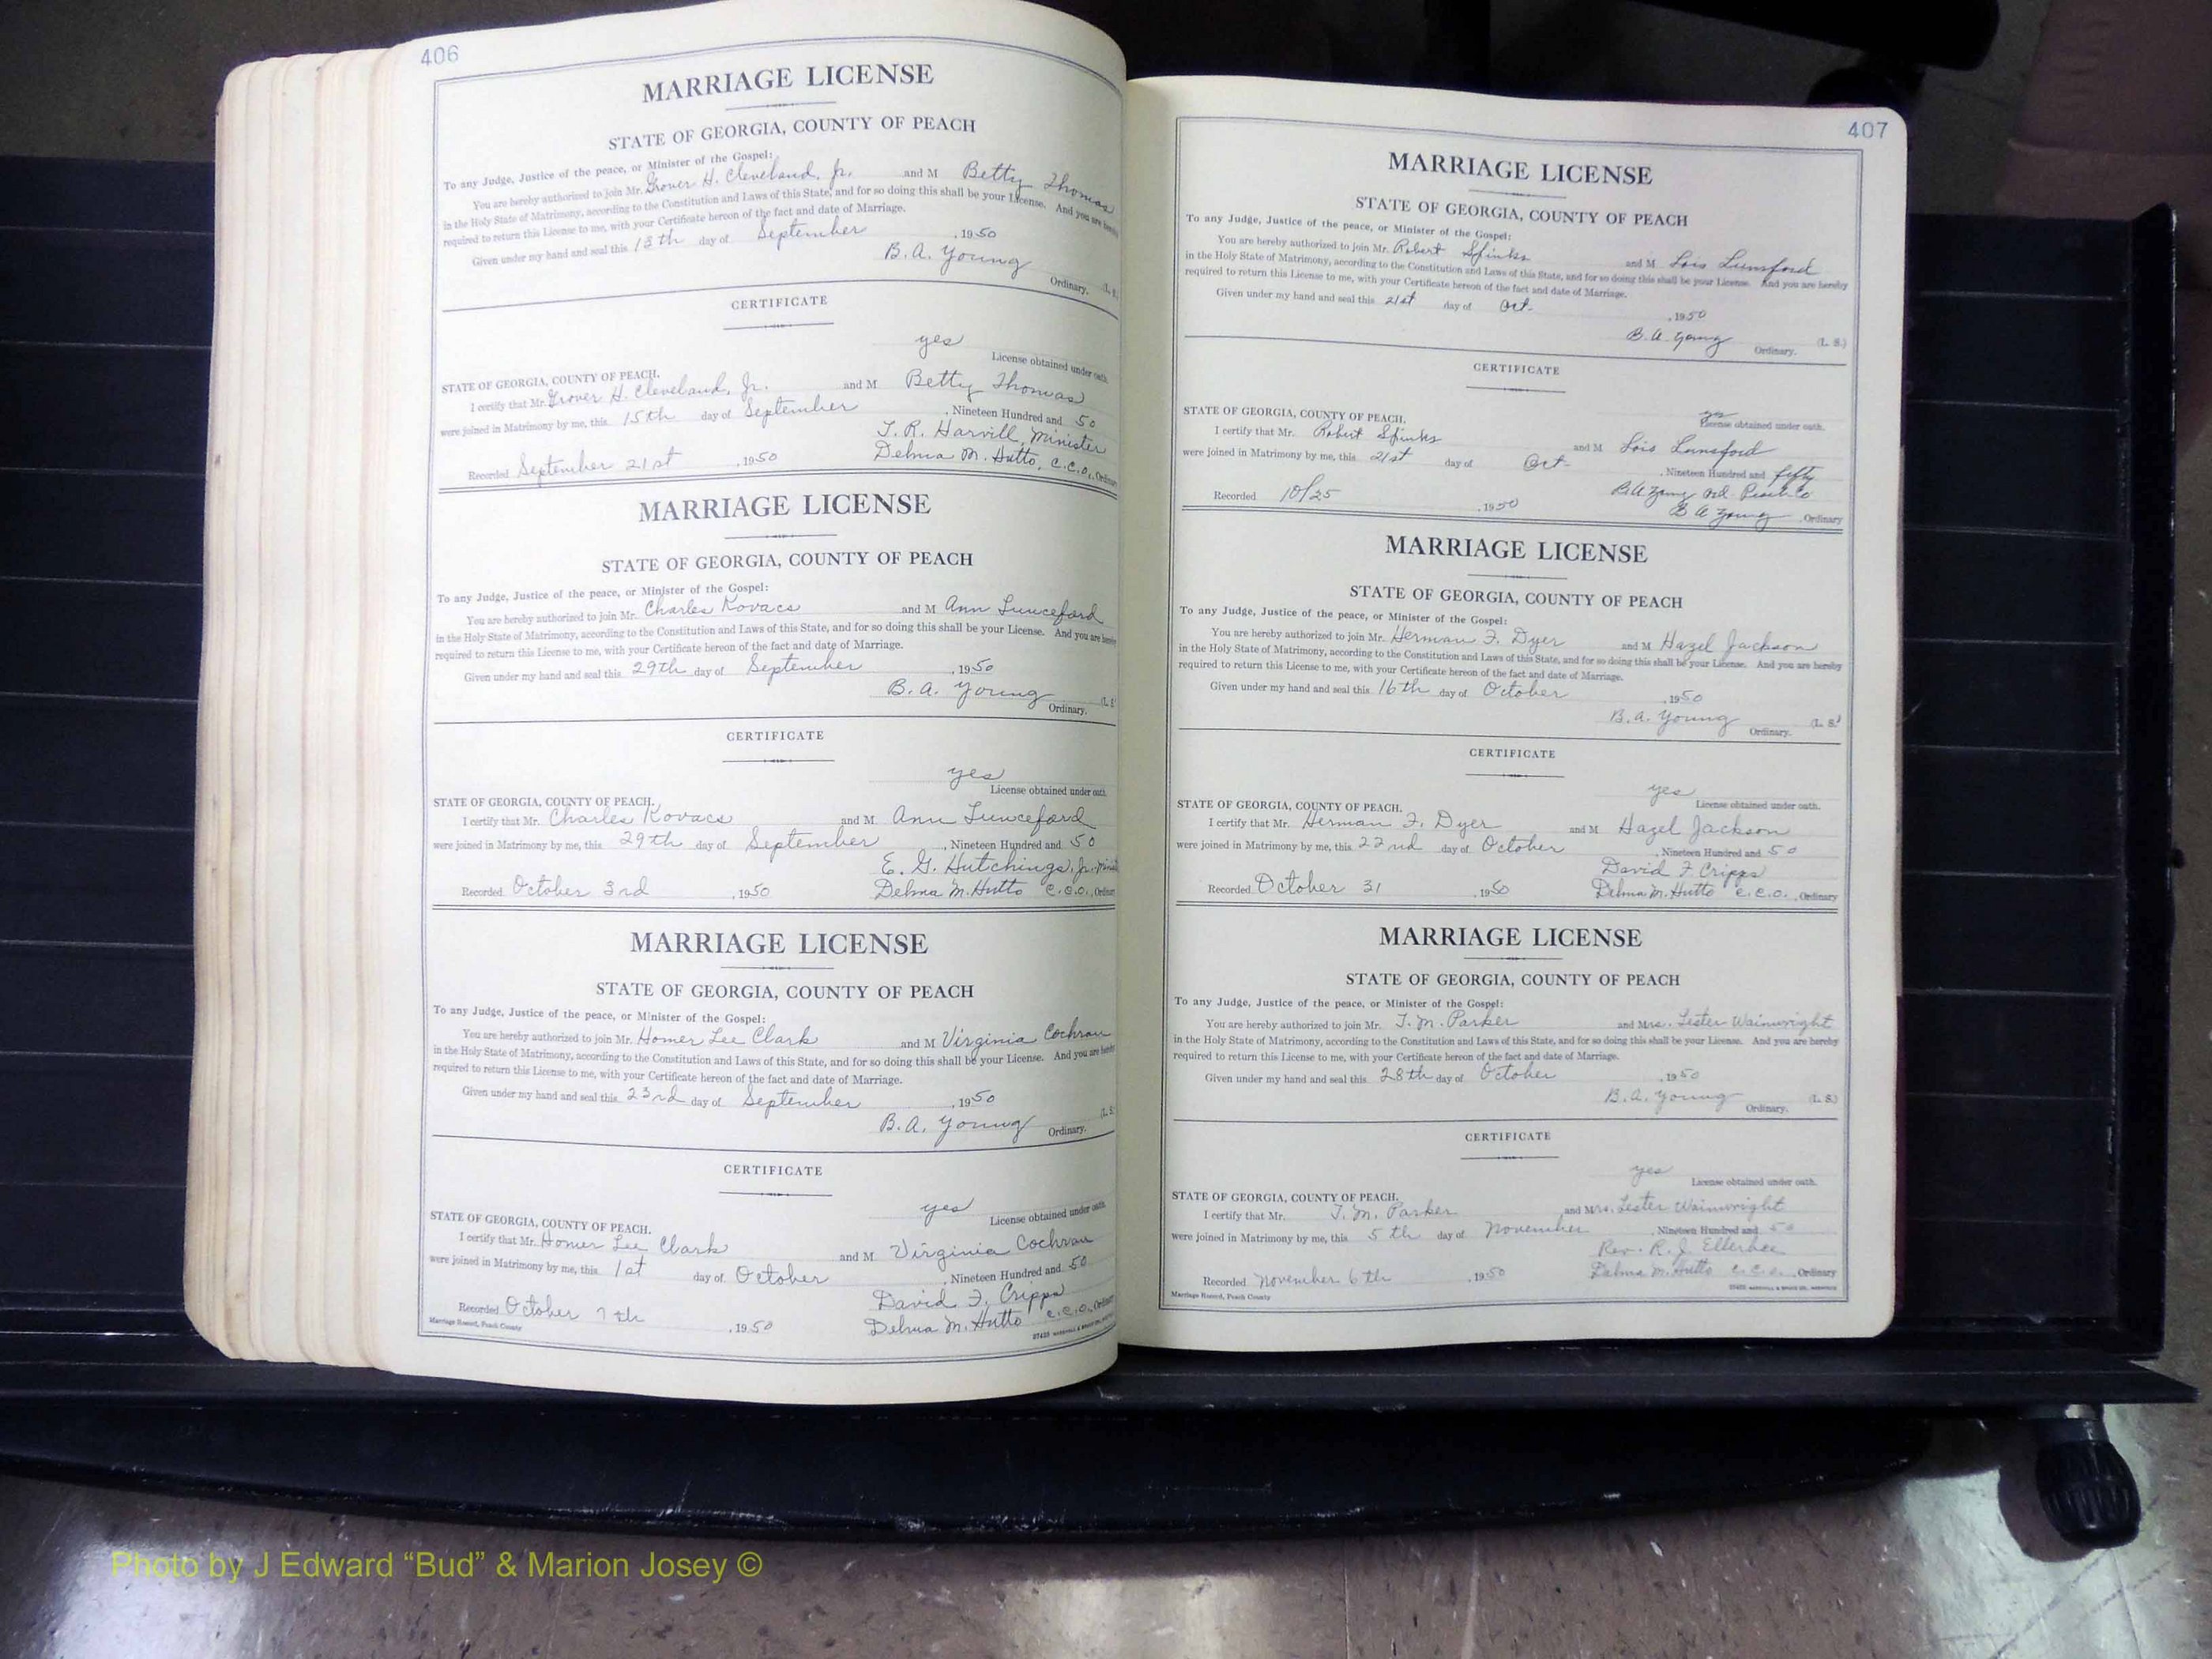 406
MARRIAGE LICENSE
STATE OF GEORGIA, COUNTY OF PEACH
To any Judge, Justice of the peace, or Minister of the Gospel:
You are hereby authorized to join Mr. Grover H. Cleveland, Jr. and M Betty Thomas
in the Holy State of Matrimony, according to the Constitution and Laws of this State, and for so doing this shall be your License. And you are hereby
required to return this License to me, with your Certificate hereon of the fact and date of Marriage.
Given under my hand and seal this 13th day of September, 1950
B. A. Young
Ordinary. (L. S.
CERTIFICATE
yes
License obtained under oath.
STATE OF GEORGIA, COUNTY OF PEACH.
I certify that Mr. Grover H. Cleveland, Jr. and M Betty Thomas
were joined in Matrimony by me, this 15th day of September, Nineteen Hundred and 50
T. R. Harvill, Minister
Recorded September 21st, 1950 Delma M. Hutto, C.C.O., Ordinary
MARRIAGE LICENSE
STATE OF GEORGIA, COUNTY OF PEACH
To any Judge, Justice of the peace, or Minister of the Gospel:
You are hereby authorized to join Mr. Charles Kovacs and M Ann Lunceford
in the Holy State of Matrimony, according to the Constitution and Laws of this State, and for so doing this shall be your License. And you are hereby
required to return this License to me, with your Certificate hereon of the fact and date of Marriage.
Given under my hand and seal this 29th day of September, 1950
B. A. Young (L. S.
Ordinary.
CERTIFICATE
yes
License obtained under oath.
STATE OF GEORGIA, COUNTY OF PEACH.
I certify that Mr. Charles Kovacs and M. Ann Lunceford
were joined in Matrimony by me, this 29th day of September, Nineteen Hundred and 50
E. G. Hutchings, Jr.
Recorded October 3rd, 1950 Delma M. Hutto C.C.O., Ordinary
MARRIAGE LICENSE
STATE OF GEORGIA, COUNTY OF PEACH
To any Judge, Justice of the peace, or Minister of the Gospel:
You are hereby authorized to join Mr. Homer Lee Clark and M Virginia Cochran
in the Holy State of Matrimony, according to the Constitution and Laws of this State, and for so doing this shall be your License. And you are hereby
required to return this License to me, with your Certificate hereon of the fact and date of Marriage.
Given under my hand and seal this 23rd day of September, 1950
B. A. Young (L. S.
Ordinary.
CERTIFICATE
yes
License obtained under oath.
STATE OF GEORGIA, COUNTY OF PEACH.
I certify that Mr. Homer Lee Clark and M Virginia Cochran
were joined in Matrimony by me, this 1st day of October, Nineteen Hundred and 50
David F. Cripps
Recorded October 7th, 1950 Delma M. Hutto C.C.O., Ordinary
Marriage Record, Peach County
407
MARRIAGE LICENSE
STATE OF GEORGIA, COUNTY OF PEACH
To any Judge, Justice of the peace, or Minister of the Gospel:
You are hereby authorized to join Mr. Robert Spinks and M Lois Lunsford
in the Holy State of Matrimony, according to the Constitution and Laws of this State, and for so doing this shall be your License. And you are hereby
required to return this License to me, with your Certificate hereon of the fact and date of Marriage.
Given under my hand and seal this 21st day of Oct., 1950
B. A. Young (L. S.)
Ordinary.
CERTIFICATE
yes
License obtained under oath.
STATE OF GEORGIA, COUNTY OF PEACH.
I certify that Mr. Robert Spinks and M Lois Lunsford
were joined in Matrimony by me, this 21st day of Oct., Nineteen Hundred and fifty
B. A. Young Ord. Peach Co
Recorded 10/25, 1950 B A Young, Ordinary
MARRIAGE LICENSE
STATE OF GEORGIA, COUNTY OF PEACH
To any Judge, Justice of the peace, or Minister of the Gospel:
You are hereby authorized to join Mr. Herman F. Dyer and M Hazel Jackson
in the Holy State of Matrimony, according to the Constitution and Laws of this State, and for so doing this shall be your License. And you are hereby
required to return this License to me, with your Certificate hereon of the fact and date of Marriage.
Given under my hand and seal this 16th day of October, 1950
B. A. Young (L. S.)
Ordinary.
CERTIFICATE
yes
License obtained under oath.
STATE OF GEORGIA, COUNTY OF PEACH.
I certify that Mr. Herman F. Dyer and M Hazel Jackson
were joined in Matrimony by me, this 22nd day of October, Nineteen Hundred and 50
David F. Cripps
Recorded October 31, 1950 Delma M. Hutto C.C.O., Ordinary
MARRIAGE LICENSE
STATE OF GEORGIA, COUNTY OF PEACH
To any Judge, Justice of the peace, or Minister of the Gospel:
You are hereby authorized to join Mr. J. M. Parker and Mrs. Lester Wainwright
in the Holy State of Matrimony, according to the Constitution and Laws of this State, and for so doing this shall be your License. And you are hereby
required to return this License to me, with your Certificate hereon of the fact and date of Marriage.
Given under my hand and seal this 28th day of October, 1950
B. A. Young (L. S.)
Ordinary.
CERTIFICATE
yes
License obtained under oath.
STATE OF GEORGIA, COUNTY OF PEACH.
I certify that Mr. J. M. Parker and Mrs. Lester Wainwright
were joined in Matrimony by me, this 5th day of November, Nineteen Hundred and 50
Rev. R. J. Ellerbee
Recorded November 6th, 1950 Delma M. Hutto C.C.O., Ordinary
Marriage Record, Peach County
Photo by J Edward “Bud” & Marion Josey ©